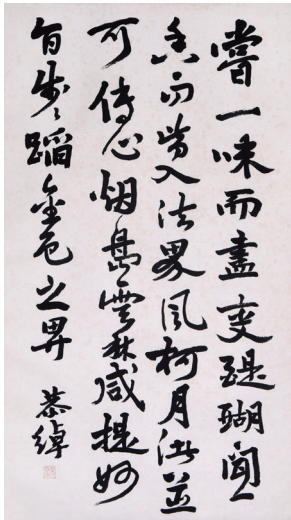 嘗一味而盡變醍醐聞一
香而皆入法界風柯月渚並
可傳心烟島雲林咸提妙
旨步々蹈金色之界 恭綽